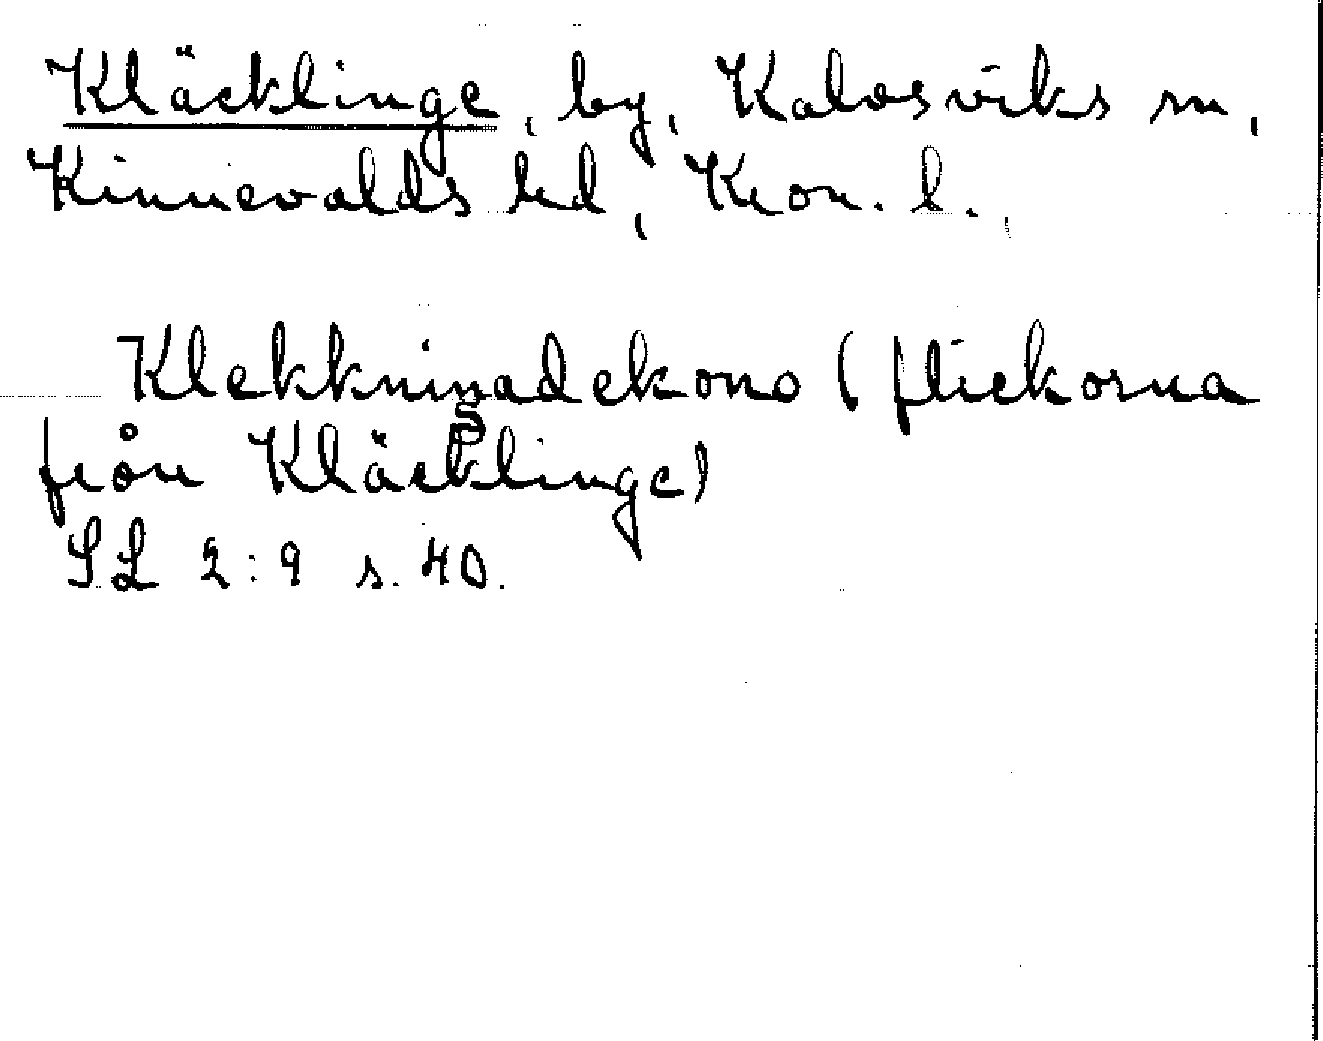 Kläcklinge, by, Kalvsviks sn,
Kinnevalds hd, Kron. l.,
Klekkningadekono (flickorna
från Kläcklinge)
SL 2:9 s. 40.